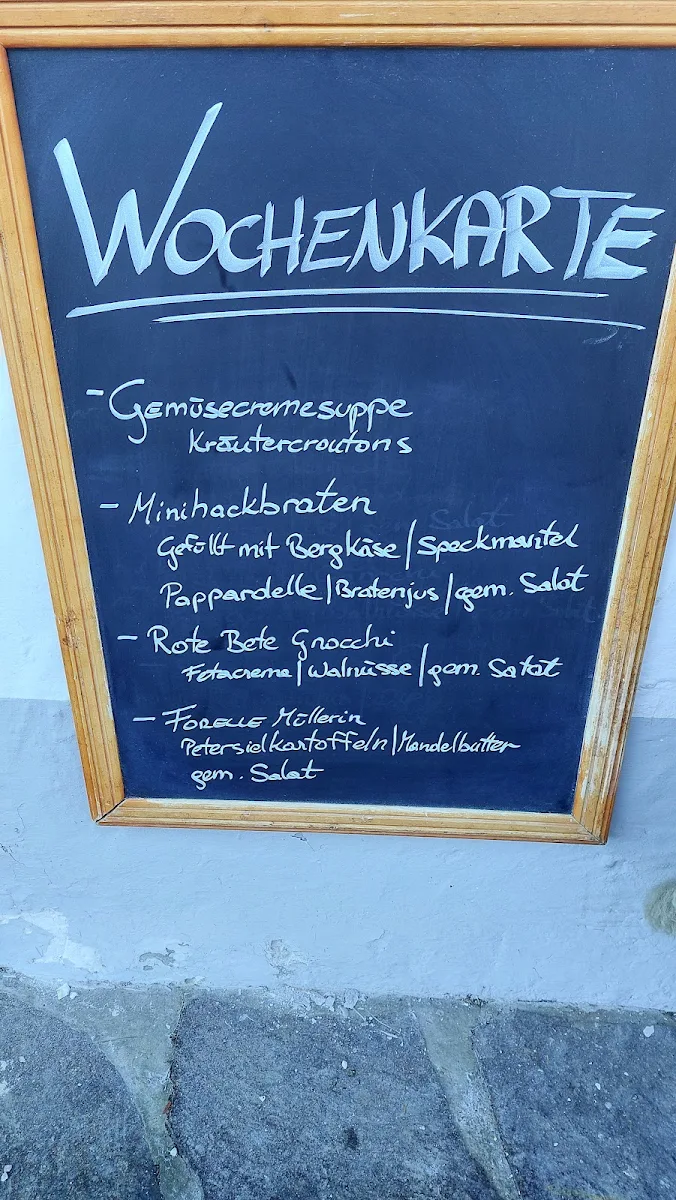 WOCHENKARTE
- Gemüsecremesuppe
Kräutercroutons
- Minihackbraten
Gefüllt mit Bergkäse | Speckmantel
Pappardelle | Bratenjus | gem. Salat
- Rote Bete Gnocchi
Fetacreme | Walnüsse | gem. Salat
- FORELLE Müllerin
Petersielkartoffeln | Mandelbutter
gem. Salat